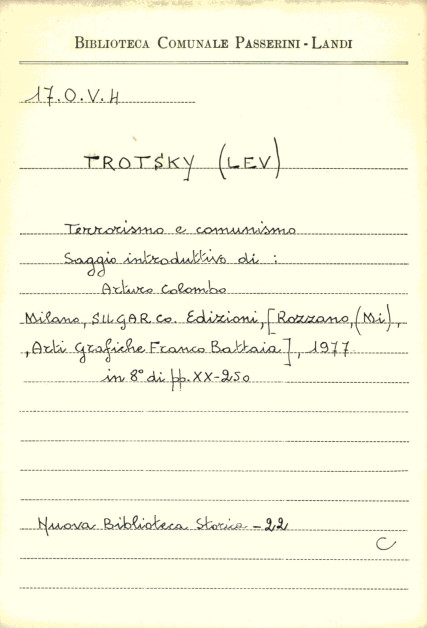 BIBLIOTECA COMUNALE PASSERINI - LANDI
17.O.V.4
TROTSKY (LEV)
Terrorismo e comunismo
Saggio introduttivo di :
Arturo Colombo
Milano, SUGAR Co. Edizioni, [Rozzano, (Mi),
, Arti Grafiche Franco Battaia], 1977
in 8° di pp. XX-250
Nuova Biblioteca Storica - 22
C